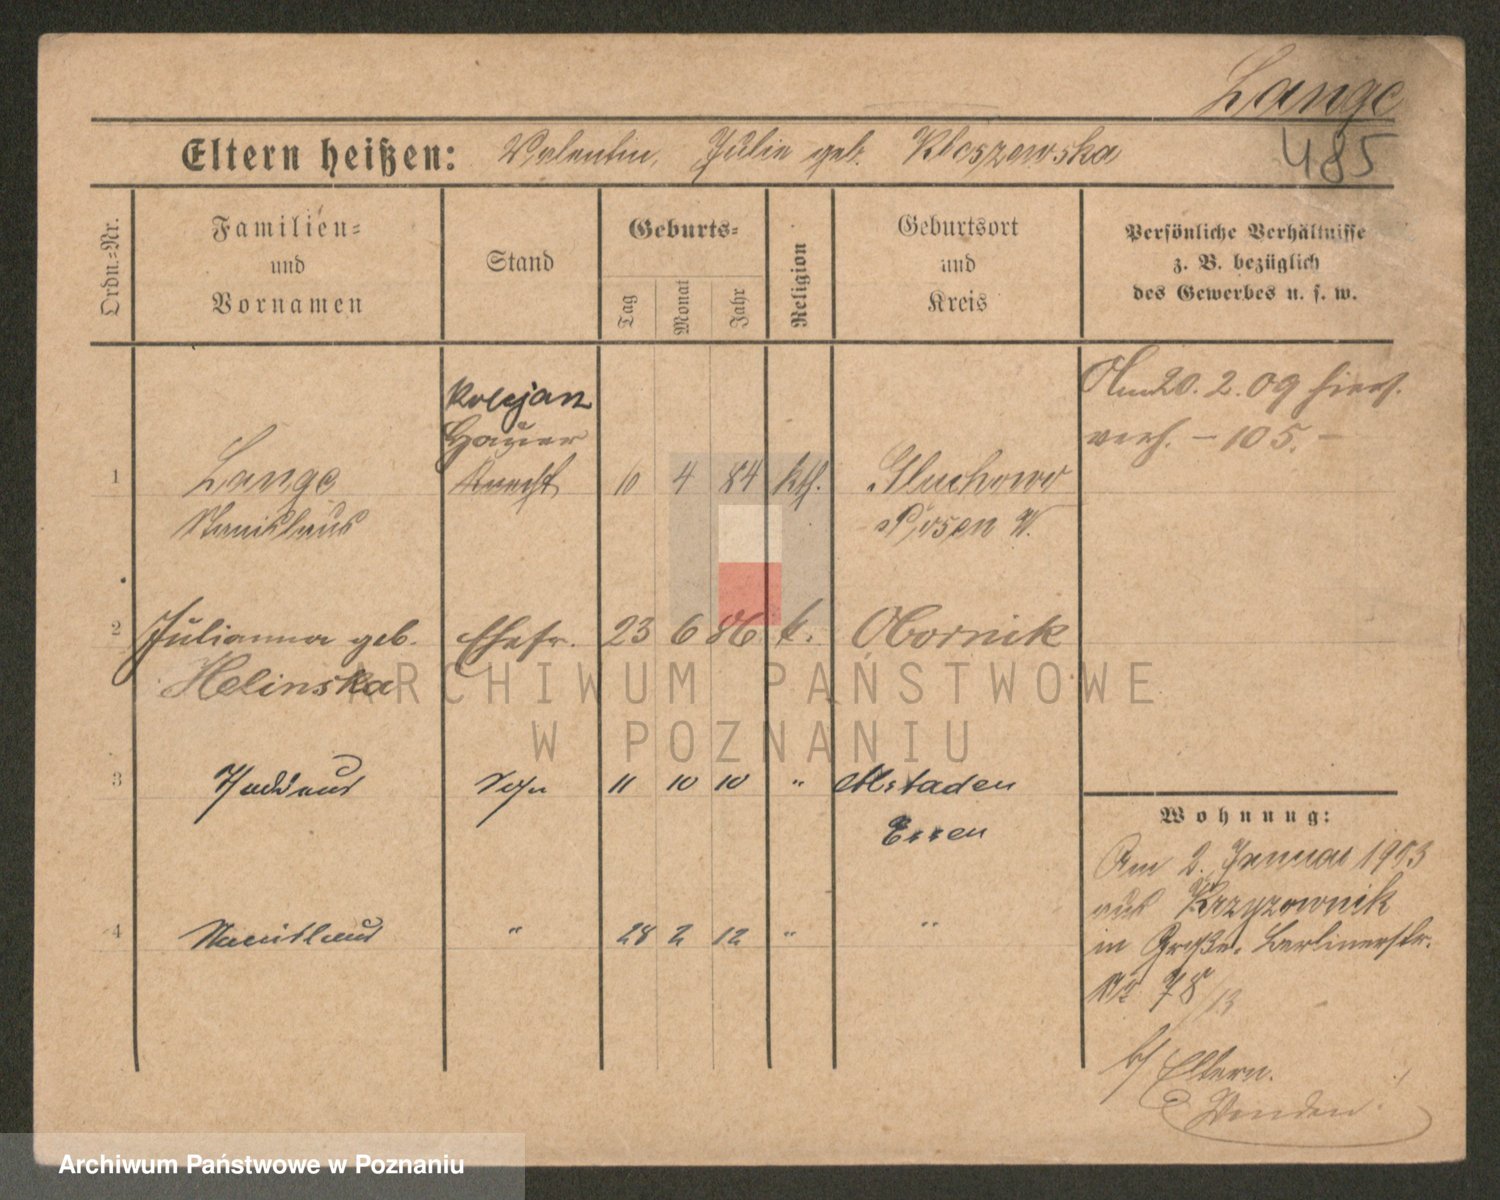 Lange
485
Eltern heißen: Valentin, Julie geb. Kloszewska
Ordn.-Nr.
Familien-
und
Vornamen
Stand
Geburts-
Tag
Monat
Jahr
Religion
Geburtsort
und
Kreis
Persönliche Verhältnisse
z. B. bezüglich
des Gewerbes u. s. w.
Kolejarz
Hauer
1 Lange Knecht 10 4 84 kth. Gluchowo
Stanislaus Posen W.
Am 20. 2. 09 hiers.
verh. – 105. –
2 Julianna geb. Ehefr. 23 6 86 k. Obornik
Helinska
3 Thaddäus Sohn 11 10 10 " Alstaden
Essen
4 Stanislaus " 28 2 12 " "
Wohnung:
Am 2. Januar 1913
aus Krzyzownik
in Große Berlinerstr.
No 78/13
b/ Eltern.
Wenden!
ARCHIWUM PAŃSTWOWE
W POZNANIU
Archiwum Państwowe w Poznaniu